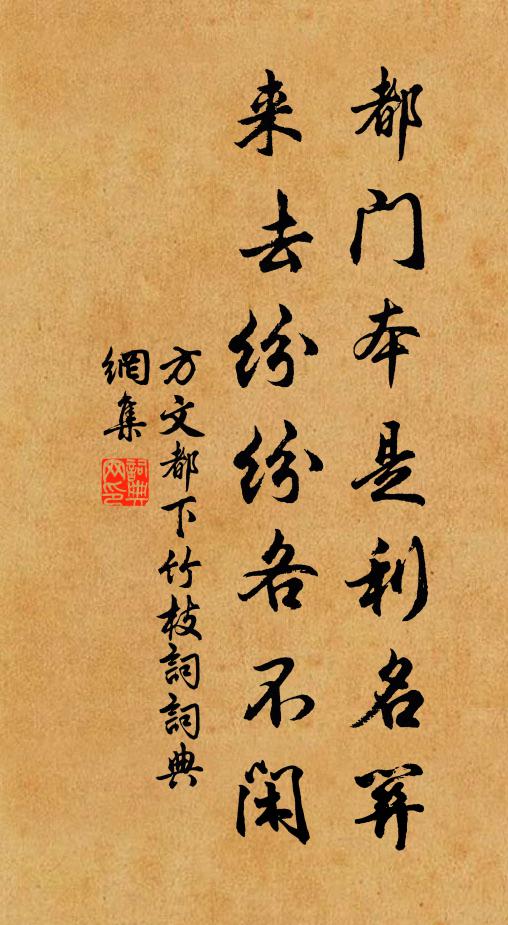 都门本是利名關
来去紛紛各不閑
方文都下竹枝詞詞典
網集
詞典
网印